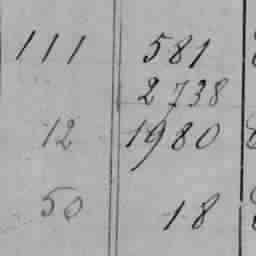 111 581
2738
12 1980
50 18